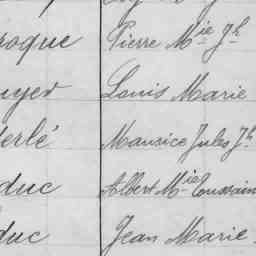 roque Pierre Mie Jh
uyer Louis Marie
erlé Maurice Jules Jh
duc Albert Mie Toussain
duc Jean Marie